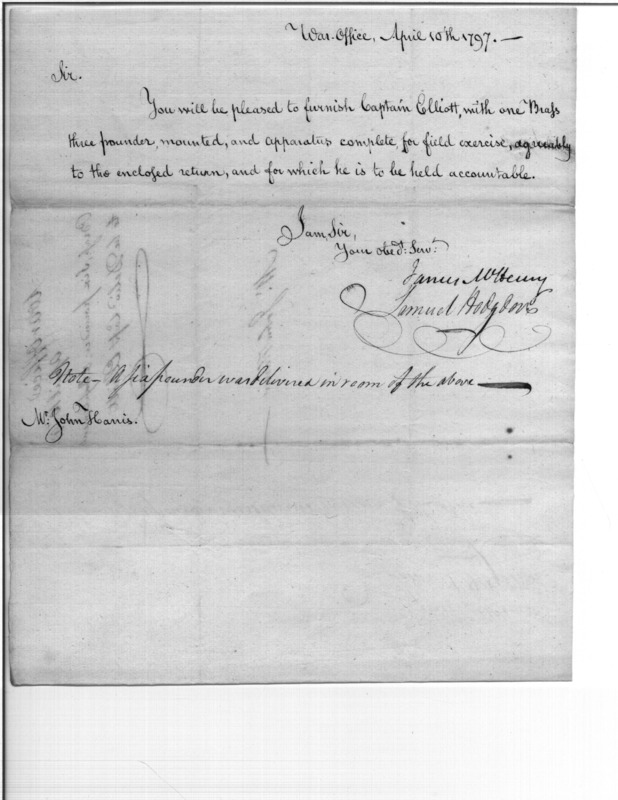 War-Office, April 10th 1797.—
Sir.
You will be pleased to furnish Captain Elliott, with one Brass
three pounder, mounted, and apparatus complete for field exercise, agreeably
to the enclosed return, and for which he is to be held accountable.
I am, Sir,
Your obedt: Servt:
James McHenry
Samuel Hodgdon
Note— A six pounder was delivered in room of the above —
Mr. John Harris.